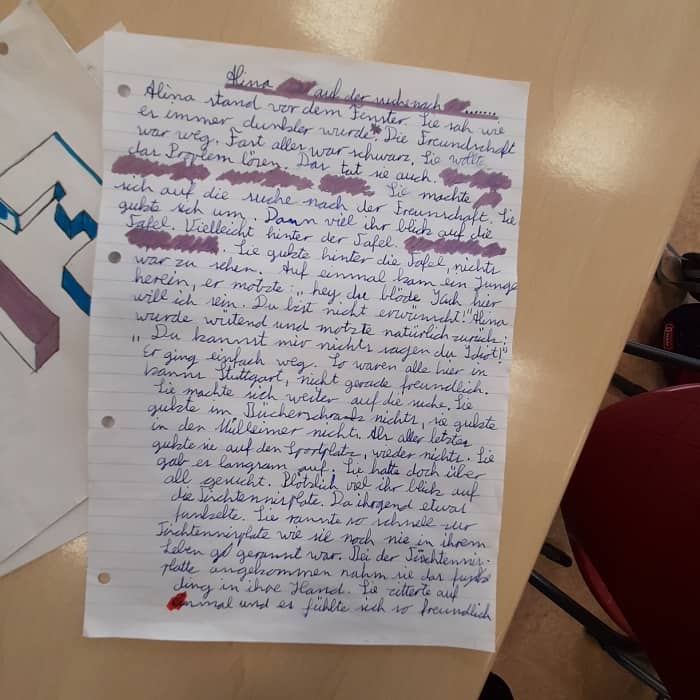 Alina auf der suche nach .......
Alina stand vor dem Fenster. Sie sah wie
es immer dunkler wurde. Die Freundschaft
war weg. Fast alles war schwarz. Sie wollte
das Problem lösen. Das tat sie auch.
Sie machte
sich auf die suche nach der Freunschaft. Sie
gukte sich um. Dann viel ihr blick auf die
Tafel. Vielleicht hinter der Tafel.
Sie gukte hinter die Tafel, nichts
war zu sehen. Auf einmal kam ein Junge
herein, er motzte: „hey du blöde Kuh hier
will ich sein. Du bist nicht erwünscht!" Alina
wurde wütend und motzte natürlich zurück:
„Du kannst mir nichts sagen du Idiot!"
Er ging einfach weg. So waren alle hier in
Stuttgart, nicht gerade freundlich.
Sie machte sich weiter auf die suche. Sie
gukte im Bücherschrank nichts, sie gukte
in den Mülleimer nichts. Als aller letztes
gukte sie auf den Sportplatz, wieder nichts. Sie
gab es langsam auf. Sie hatte doch über
all gesucht. Plötzlich viel ihr blick auf
die Tischtennisplate. Da ihrgend etwas
funkelte. Sie rannte so schnell zur
Tischtennisplate wie sie noch nie in ihrem
Leben gerannt war. Bei der Tischtennis-
platte angekommen nahm sie das funkel
ding in ihre Hand. Sie zitterte auf
einmal und es fühlte sich so freundlich